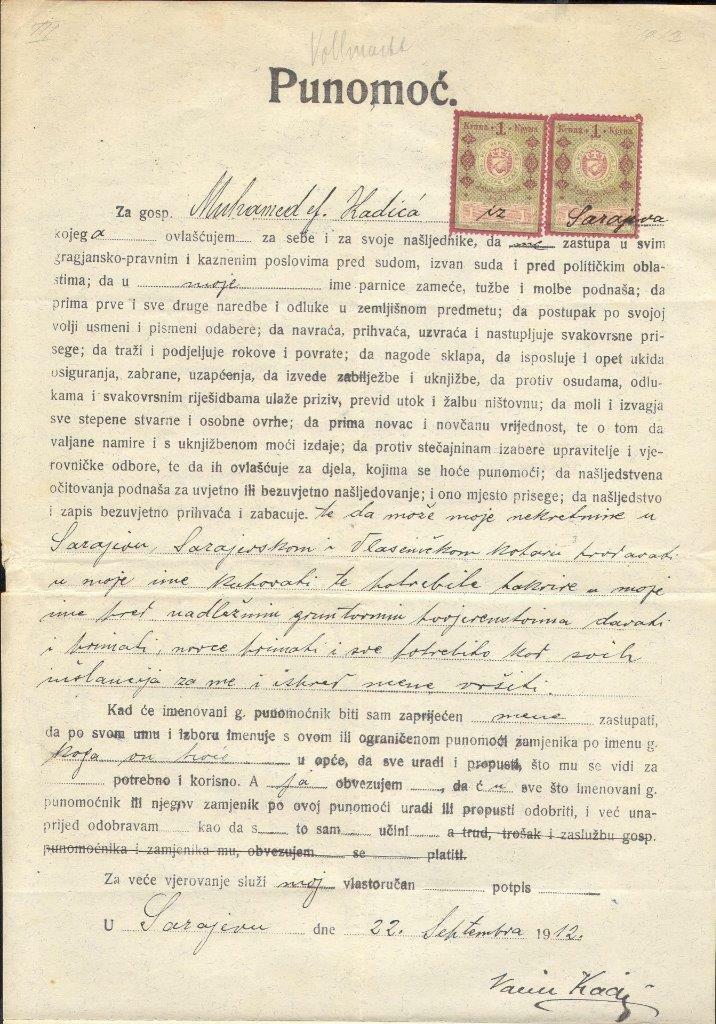 Vollmacht
Punomoć.
Kruna • 1 • Kruna Kruna • 1 • Kruna
Za gosp. Muhamed ef. Kadića iz Sarajeva
kojega ovlašćujem za sebe i za svoje našljednike, da me zastupa u svim
gragjansko-pravnim i kaznenim poslovima pred sudom, izvan suda i pred političkim obla-
stima; da u moje ime parnice zameće, tužbe i molbe podnaša; da
prima prve i sve druge naredbe i odluke u zemljišnom predmetu; da postupak po svojoj
volji usmeni i pismeni odabere; da navraća, prihvaća, uzvraća i nastupljuje svakovrsne pri-
sege; da traži i podjeljuje rokove i povrate; da nagode sklapa, da isposluje i opet ukida
osiguranja, zabrane, uzapćenja, da izvede zabilježbe i uknjižbe, da protiv osudama, odlu-
kama i svakovrsnim riješidbama ulaže priziv, previd utok i žalbu ništovnu; da moli i izvagja
sve stepene stvarne i osobne ovrhe; da prima novac i novčanu vrijednost, te o tom da
valjane namire i s uknjižbenom moći izdaje; da protiv stečajninam izabere upravitelje i vje-
rovničke odbore, te da ih ovlašćuje za djela, kojima se hoće punomoći; da našljedstvena
očitovanja podnaša za uvjetno ili bezuvjetno našljedovanje; i ono mjesto prisege; da našljedstvo
i zapis bezuvjetno prihvaća i zabacuje. te da može moje nekretnine u
Sarajevu, Sarajevskom i Vlaseničkom kotaru prodavati
u moje ime kupovati te potrebite u moje
ime pred nadležnim gruntovnim povjerenstvima davati
i primati, novce primati i sve potrebito kod svih
instancija za me i ispred mene vršiti.
Kad će imenovani g. punomoćnik biti sam zapriječen mene zastupati,
da po svom umu i izboru imenuje s ovom ili ograničenom punomoći zamjenika po imenu g.
koga on hoće u opće, da sve uradi i propusti, što mu se vidi za
potrebno i korisno. A ja obvezujem , da ću sve što imenovani g.
punomoćnik ili njegov zamjenik po ovoj punomoći uradi ili propusti odobriti, i već una-
prijed odobravam kao da s to sam učini a trud, trošak i zaslužbu gosp.
punomoćnika i zamjenika mu, obvezujem se platiti.
Za veće vjerovanje služi moj vlastoručan potpis
U Sarajevu dne 22. Septembra 1912.
Kadić